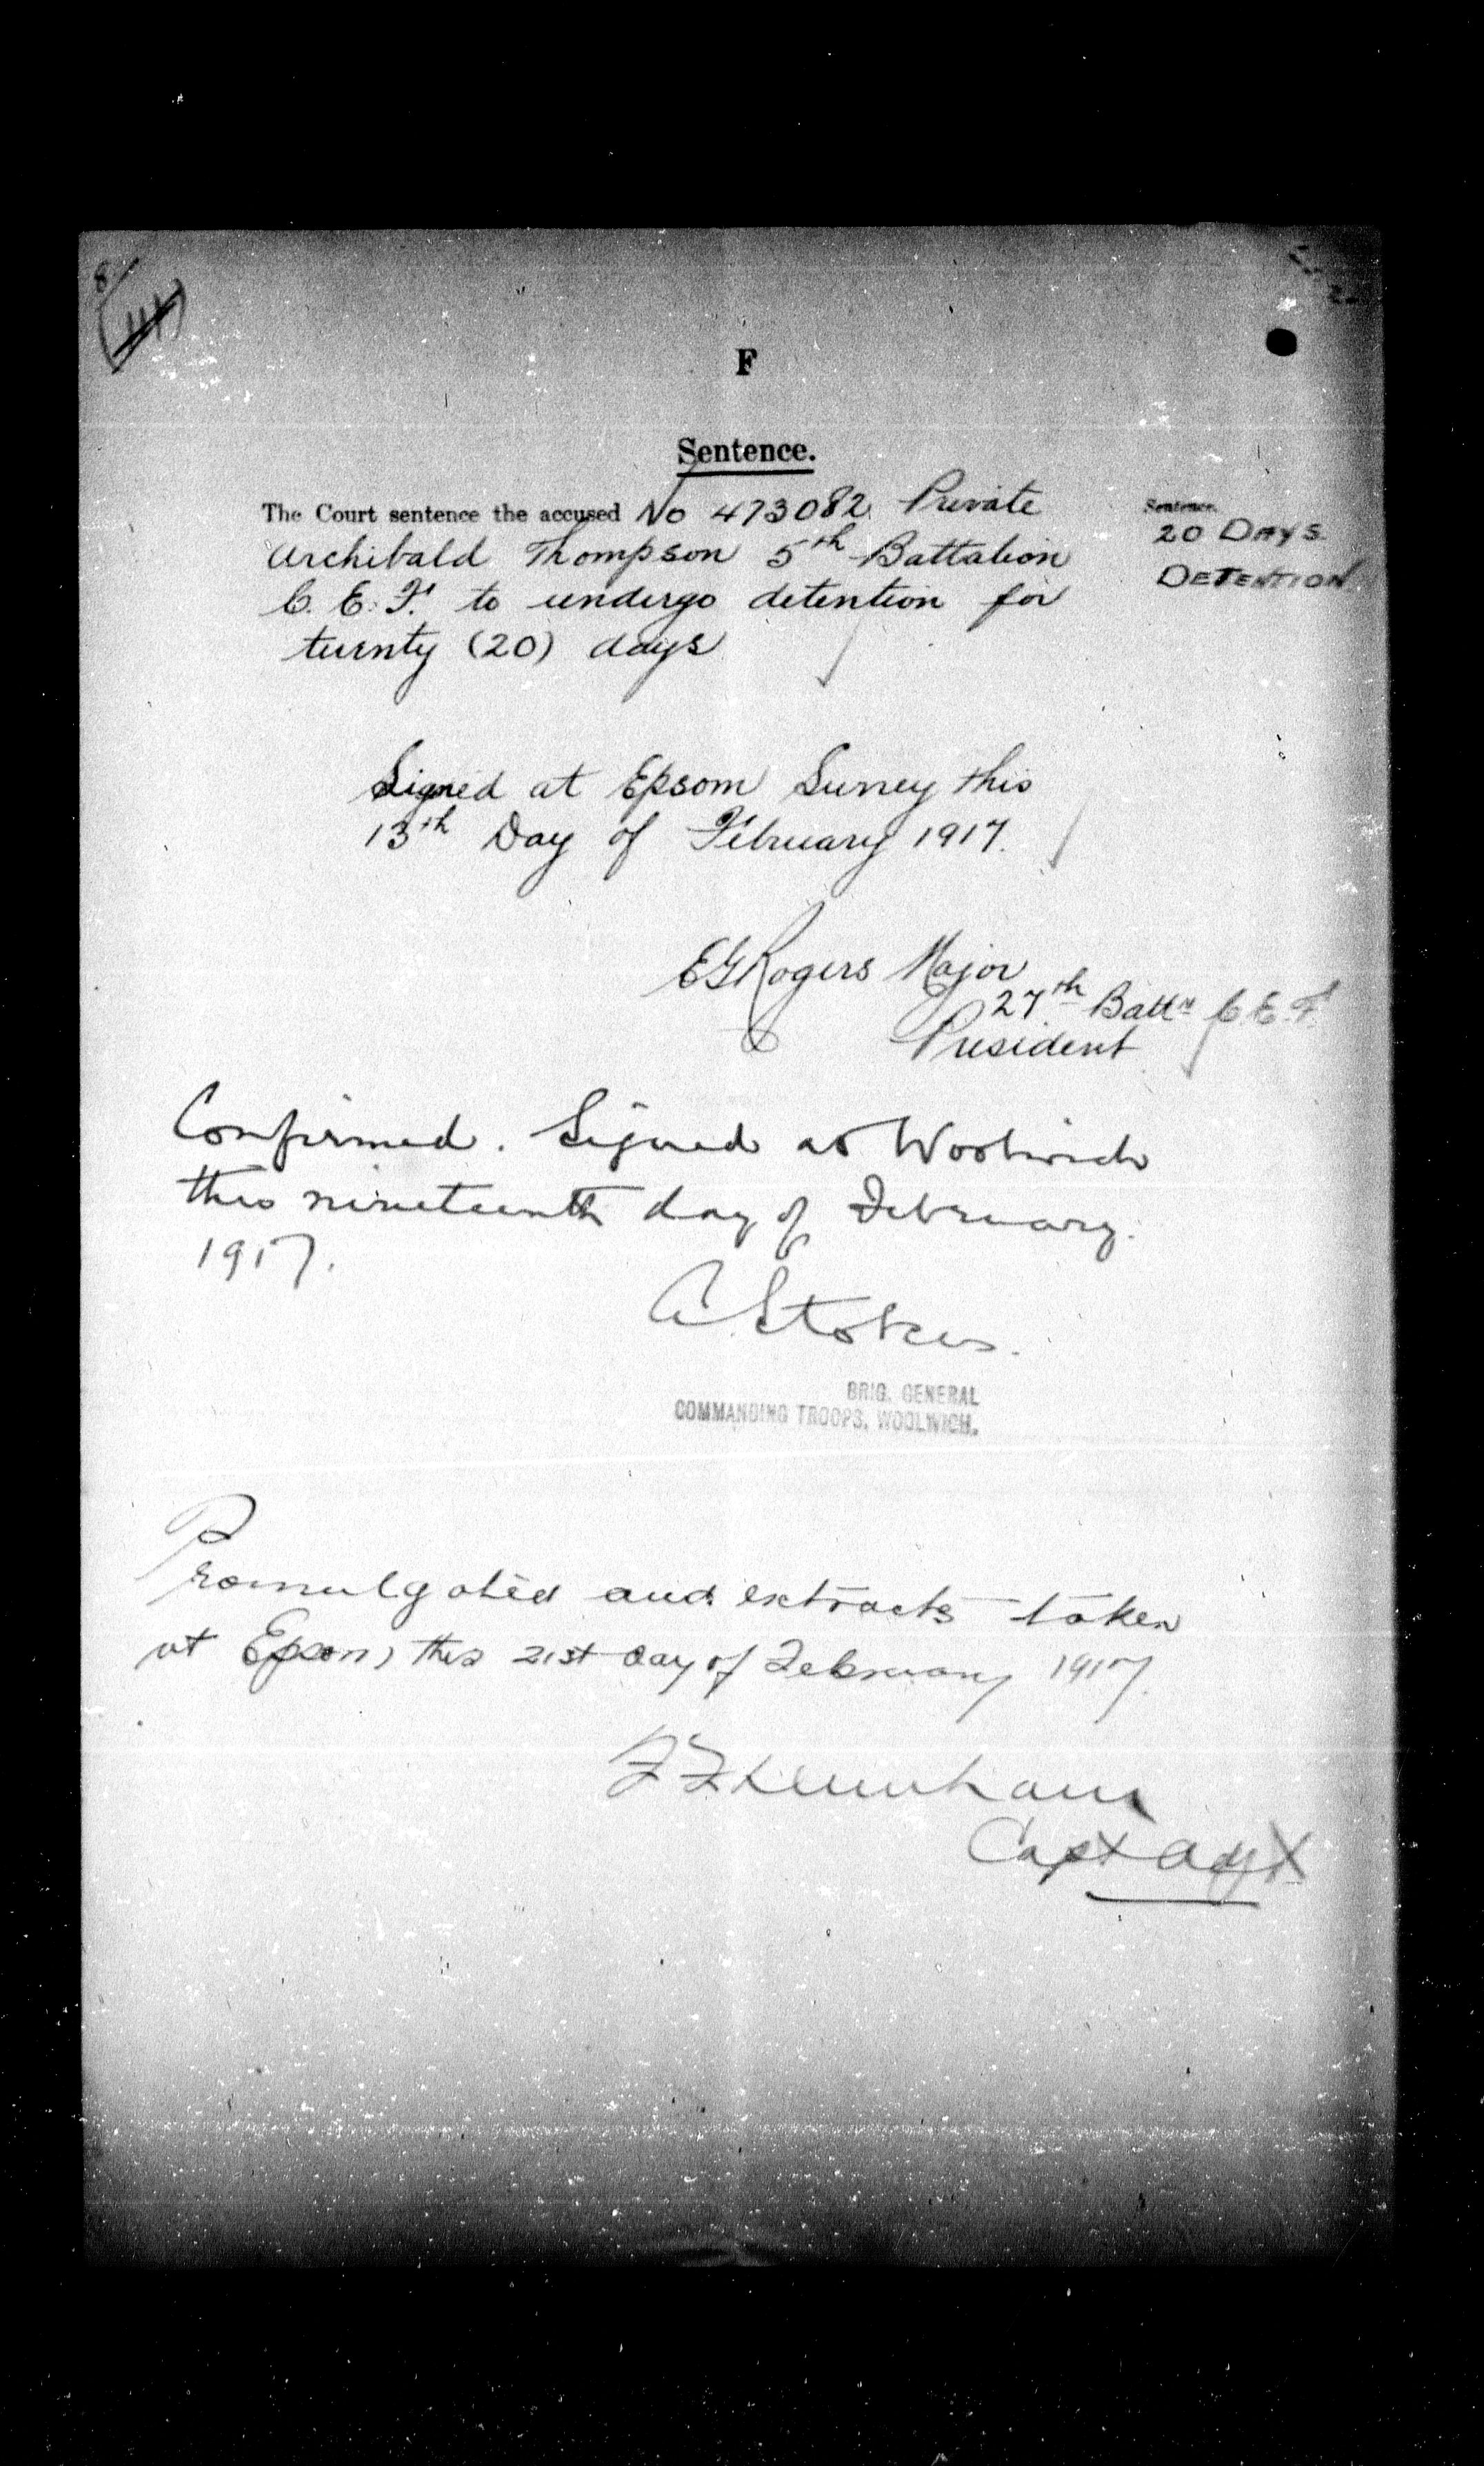 8/
F
Sentence.
The Court sentence the accused No 473082 Private
Archibald Thompson 5th Battalion
C. E. F. to undergo detention for
twenty (20) days
Sentence.
20 DAYS
DETENTION
Signed at Epsom Surrey this
13th Day of February 1917.
EGRogers Major
27th Battn C. E. F.
President
Confirmed. Signed at Woolwich
this nineteenth day of February.
1917.
A. Stokes.
BRIG. GENERAL
COMMANDING TROOPS, WOOLWICH.
Promulgated and extracts taken
at Epsom this 21st day of February 1917.
Capt Adjt